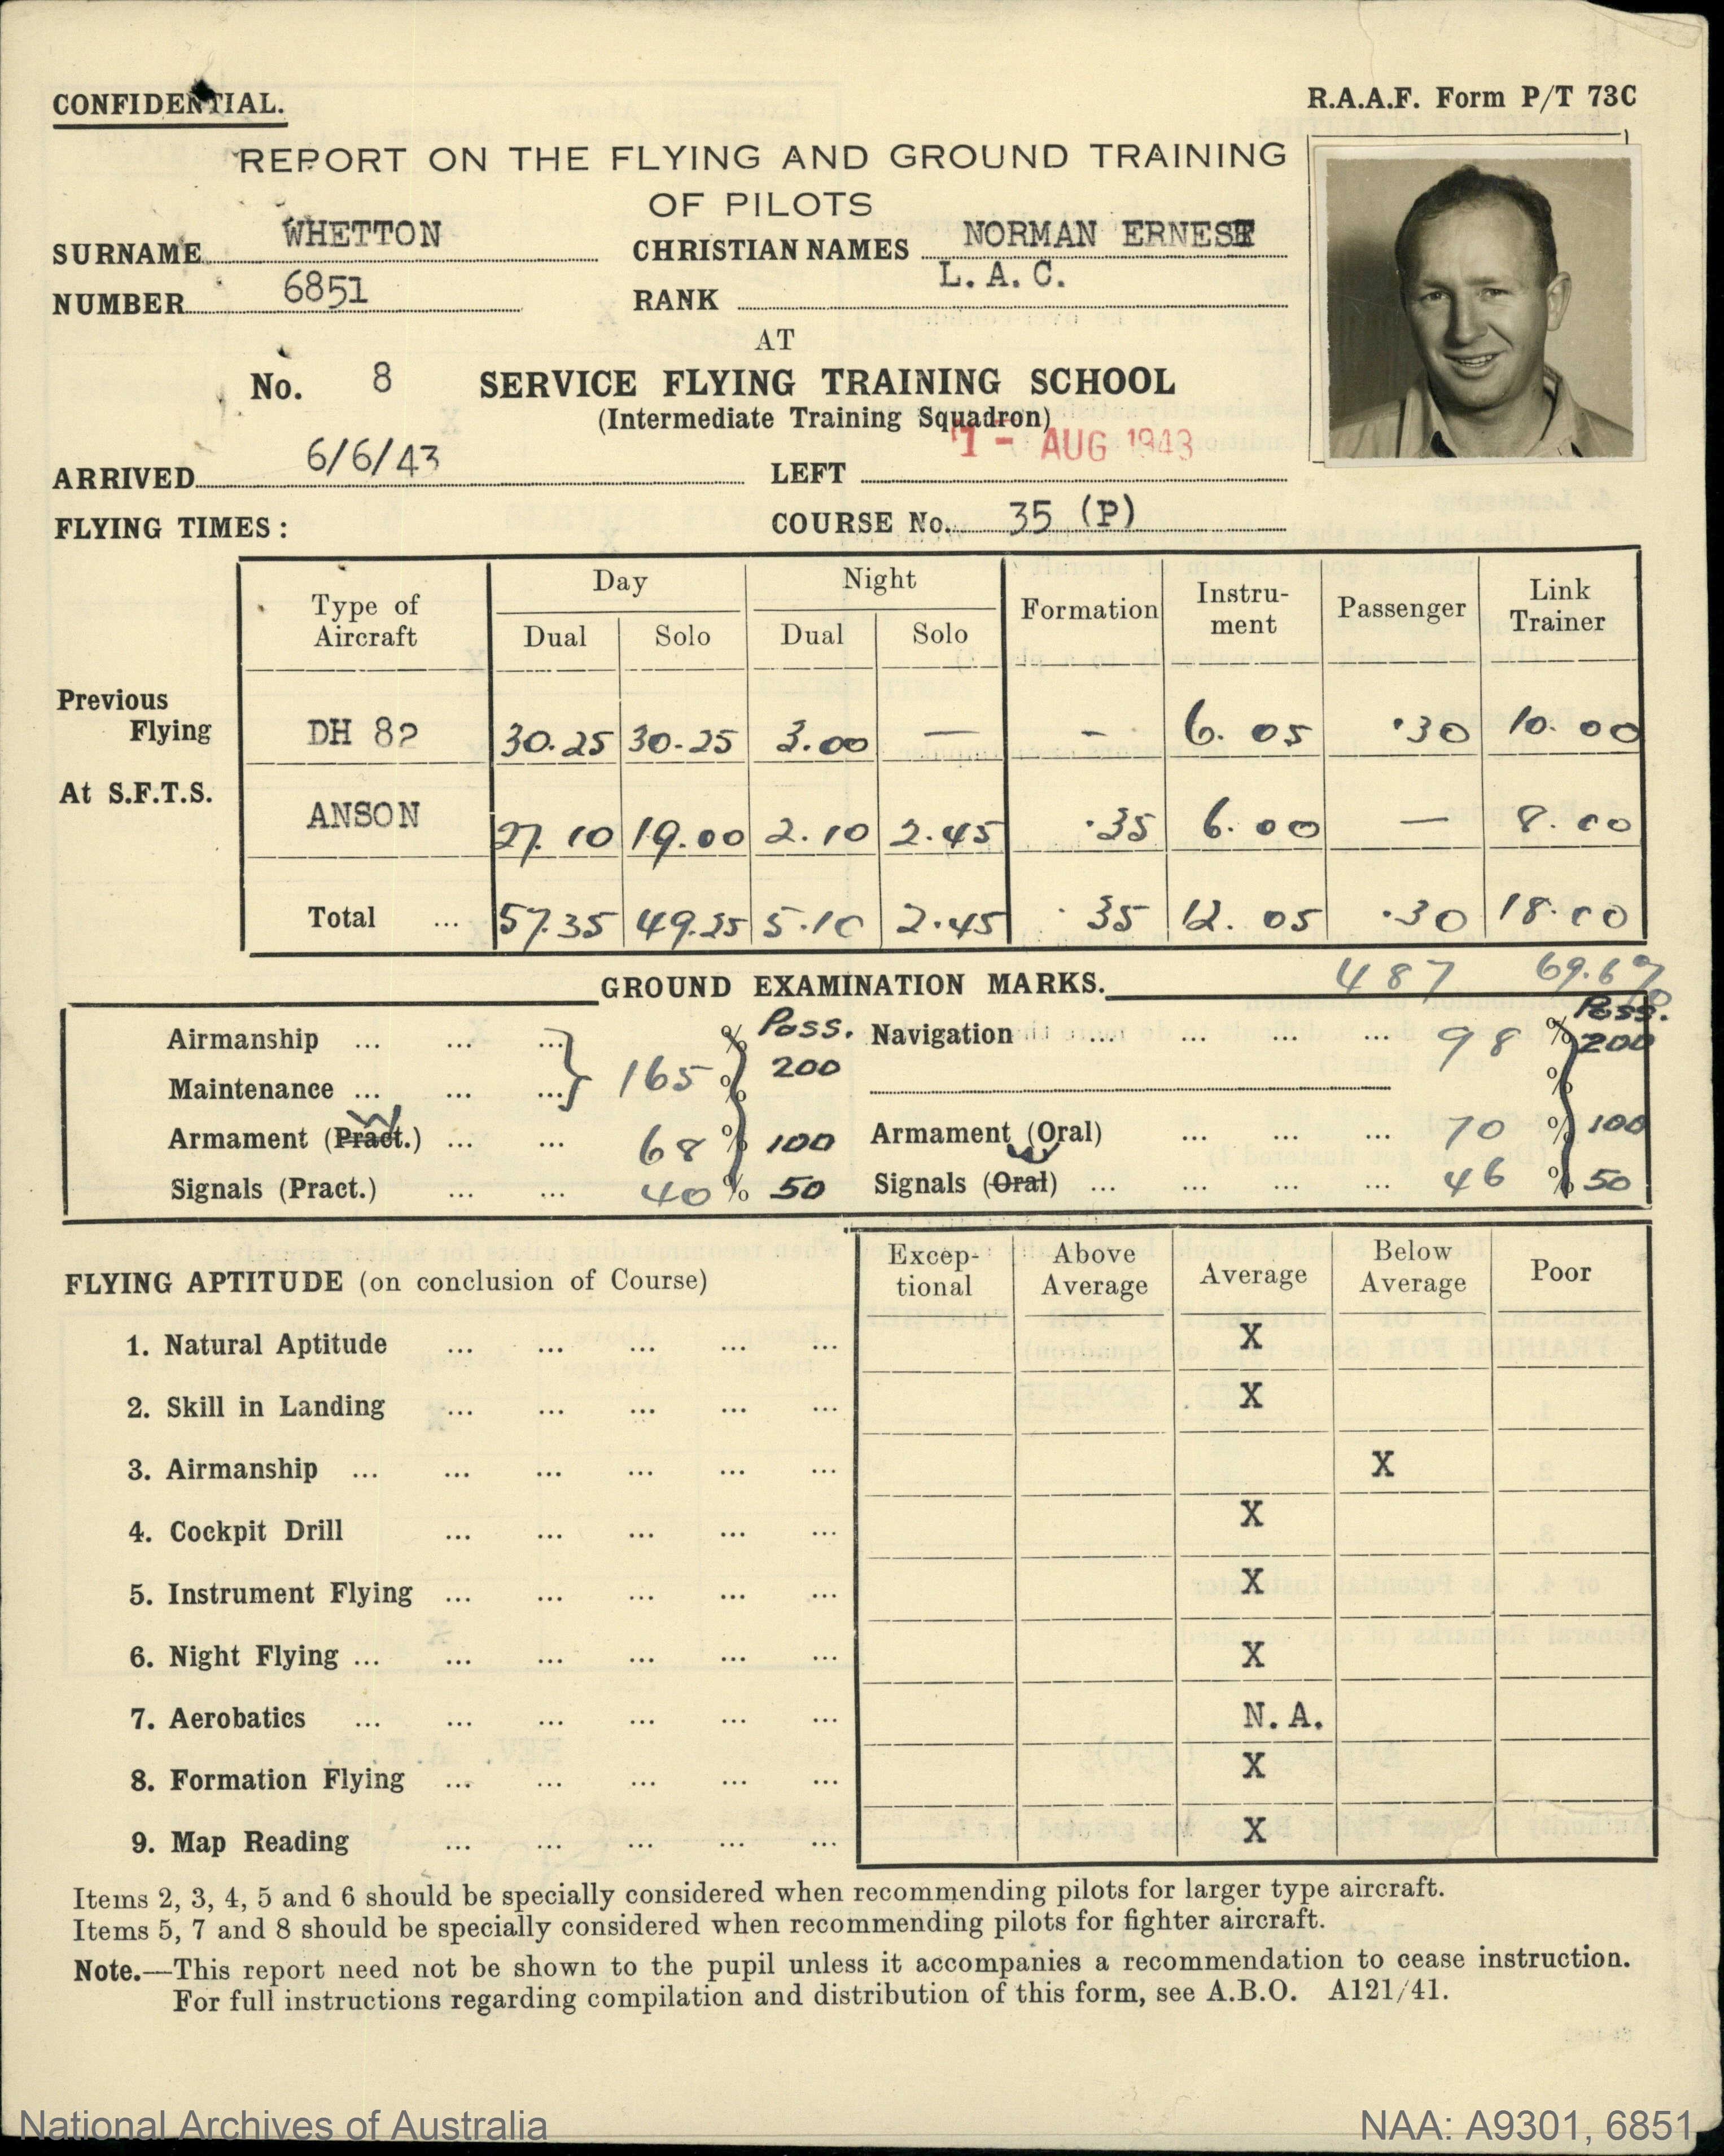 CONFIDENTIAL.
R.A.A.F. Form P/T 73C
REPORT ON THE FLYING AND GROUND TRAINING
OF PILOTS
SURNAME WHETTON
CHRISTIAN NAMES NORMAN ERNEST
NUMBER 6851
RANK L.A.C.
AT
No. 8 SERVICE FLYING TRAINING SCHOOL
(Intermediate Training Squadron)
ARRIVED 6/6/43
LEFT 1 - AUG 1943
FLYING TIMES:
COURSE No. 35 (P)
Type of Aircraft Day Night Formation Instru-ment Passenger Link Trainer
Dual Solo Dual Solo
Previous Flying DH 82 30.25 30.25 3.00 — - 6.05 .30 10.00
At S.F.T.S. ANSON 27.10 19.00 2.10 2.45 .35 6.00 — 8.00
Total ... 57.35 49.25 5.10 2.45 .35 12.05 .30 18.00
GROUND EXAMINATION MARKS. 487 69.6%
Airmanship ... ... ... % Pass. Navigation ... ... ... ... 98 % Pass. 200
Maintenance ... ... ... 165 % 200 %
Armament (Pract.) W ... ... 68 % 100 Armament (Oral) ... ... ... 70 % 100
Signals (Pract.) ... ... 40 % 50 Signals (Oral) W ... ... ... ... 46 % 50
FLYING APTITUDE (on conclusion of Course) Excep-tional Above Average Average Below Average Poor
1. Natural Aptitude ... ... ... ... ... X
2. Skill in Landing ... ... ... ... ... X
3. Airmanship ... ... ... ... ... ... X
4. Cockpit Drill ... ... ... ... ... X
5. Instrument Flying ... ... ... ... ... X
6. Night Flying ... ... ... ... ... ... X
7. Aerobatics ... ... ... ... ... ... N.A.
8. Formation Flying ... ... ... ... ... X
9. Map Reading ... ... ... ... ... X
Items 2, 3, 4, 5 and 6 should be specially considered when recommending pilots for larger type aircraft.
Items 5, 7 and 8 should be specially considered when recommending pilots for fighter aircraft.
Note.—This report need not be shown to the pupil unless it accompanies a recommendation to cease instruction.
For full instructions regarding compilation and distribution of this form, see A.B.O. A121/41.
National Archives of Australia
NAA: A9301, 6851